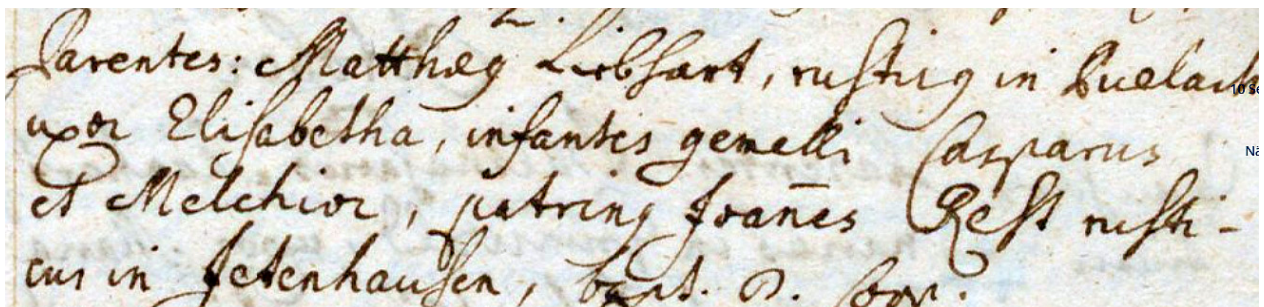 Parentes: Matthæg Liebhart, rusticg in Puelach
uxor Elisabetha, infantes gemelli Casparus
et Melchior, patring Joan̄es Rest rusti-
cus in Jetenhausen, bapt. D. Coop.
10 Se
Nä